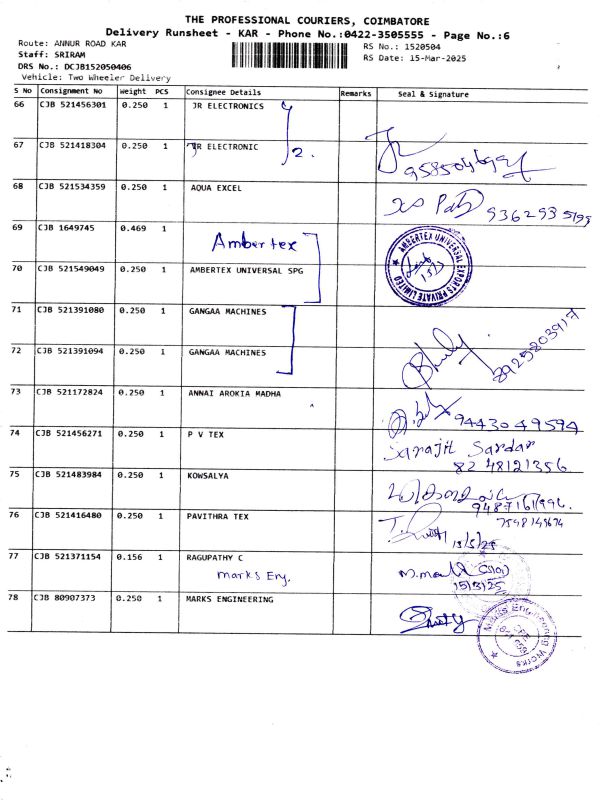 THE PROFESSIONAL COURIERS, COIMBATORE
Delivery Runsheet - KAR - Phone No.:0422-3505555 - Page No.:6
Route: ANNUR ROAD KAR
RS No.: 1520504
Staff: SRIRAM
RS Date: 15-Mar-2025
DRS No.: DCJB152050406
Vehicle: Two Wheeler Delivery
S No Consignment No Weight PCS Consignee Details Remarks Seal & Signature
66 CJB 521456301 0.250 1 JR ELECTRONICS
67 CJB 521418304 0.250 1 JR ELECTRONIC 2.
68 CJB 521534359 0.250 1 AQUA EXCEL
9362935199
69 CJB 1649745 0.469 1
Ambertex
AMBERTEX UNIVERSAL EXPORTS PRIVATE LIMITED
70 CJB 521549049 0.250 1 AMBERTEX UNIVERSAL SPG
71 CJB 521391080 0.250 1 GANGAA MACHINES
8925803917
72 CJB 521391094 0.250 1 GANGAA MACHINES
73 CJB 521172824 0.250 1 ANNAI AROKIA MADHA
9443049594
74 CJB 521456271 0.250 1 P V TEX
Sarajit Sardar
8248121356
75 CJB 521483984 0.250 1 KOWSALYA
76 CJB 521416480 0.250 1 PAVITHRA TEX
77 CJB 521371154 0.156 1 RAGUPATHY C
marks Eng.
15/3/25
78 CJB 80907373 0.250 1 MARKS ENGINEERING
Marks Engineering Works